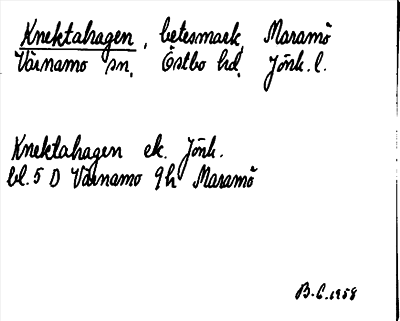 Knektahagen, betesmark, Maramö
Värnamo sn. Östbo hd. Jönk. l.
Knektahagen ek. Jönk.
bl. 5 D Värnamo 9h Maramö
B.C. 1958